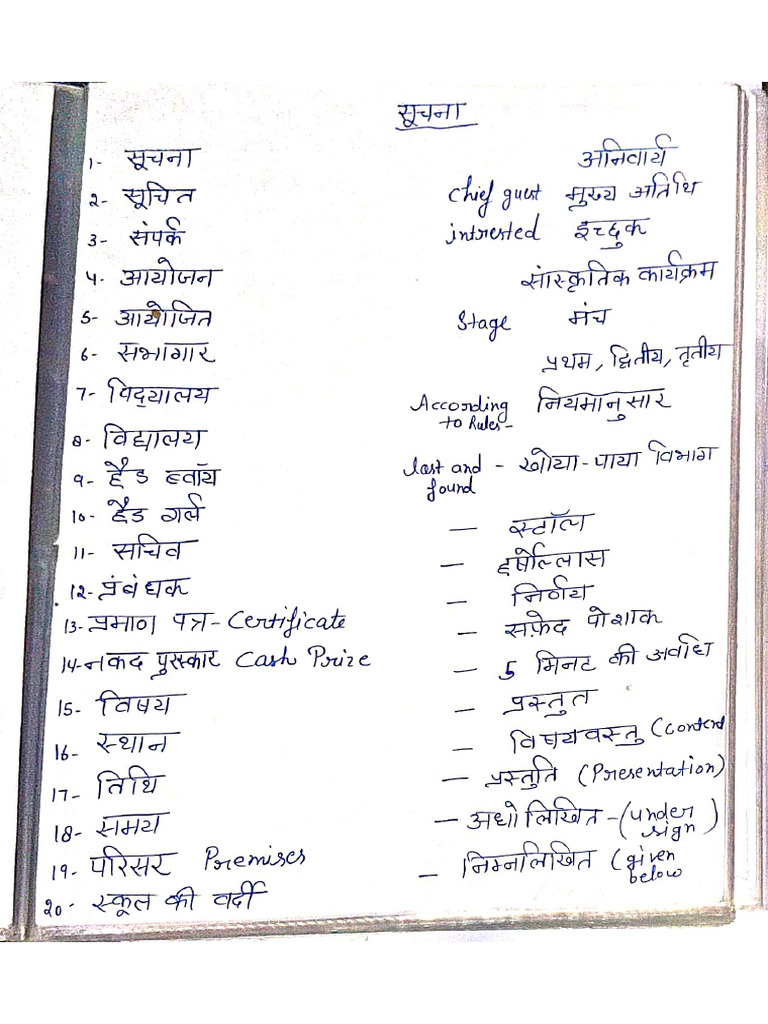 सूचना
1- सूचना
2- सूचित
3- संपर्क
4- आयोजन
5- आयोजित
6- सभागार
7- विद्‌यालय
8- विद्यालय
9- हैड ब्वॉय
10- हैड गर्ल
11- सचिव
12- प्रंबंधक
13- प्रमाण पत्र - Certificate
14- नकद पुरस्कार Cash Prize
15- विषय
16- स्थान
17- तिथि
18- समय
19- परिसर Premises
20- स्कूल की वर्दी
अनिवार्य
Chief guest मुख्य अतिथि
intrested इच्छुक
सांस्कृतिक कार्यक्रम
Stage मंच
प्रथम, द्वितीय, तृतीय
According नियमानुसार
to Rules-
last and - खोया-पाया विभाग
found
- स्टॉल
- हर्षोल्लास
- निर्णय
- सफ़ेद पोशाक
- 5 मिनट की अवधि
- प्रस्तुत
- विषयवस्तु (content
- प्रस्तुति (Presentation)
- अधोलिखित - (under
sign)
- निम्नलिखित (given
below